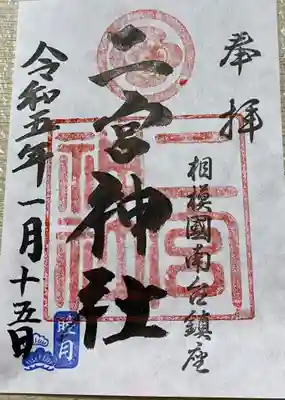 奉拝
相模國南台鎮座
二宮神社
令和五年一月十五日
二宮神社
睦月